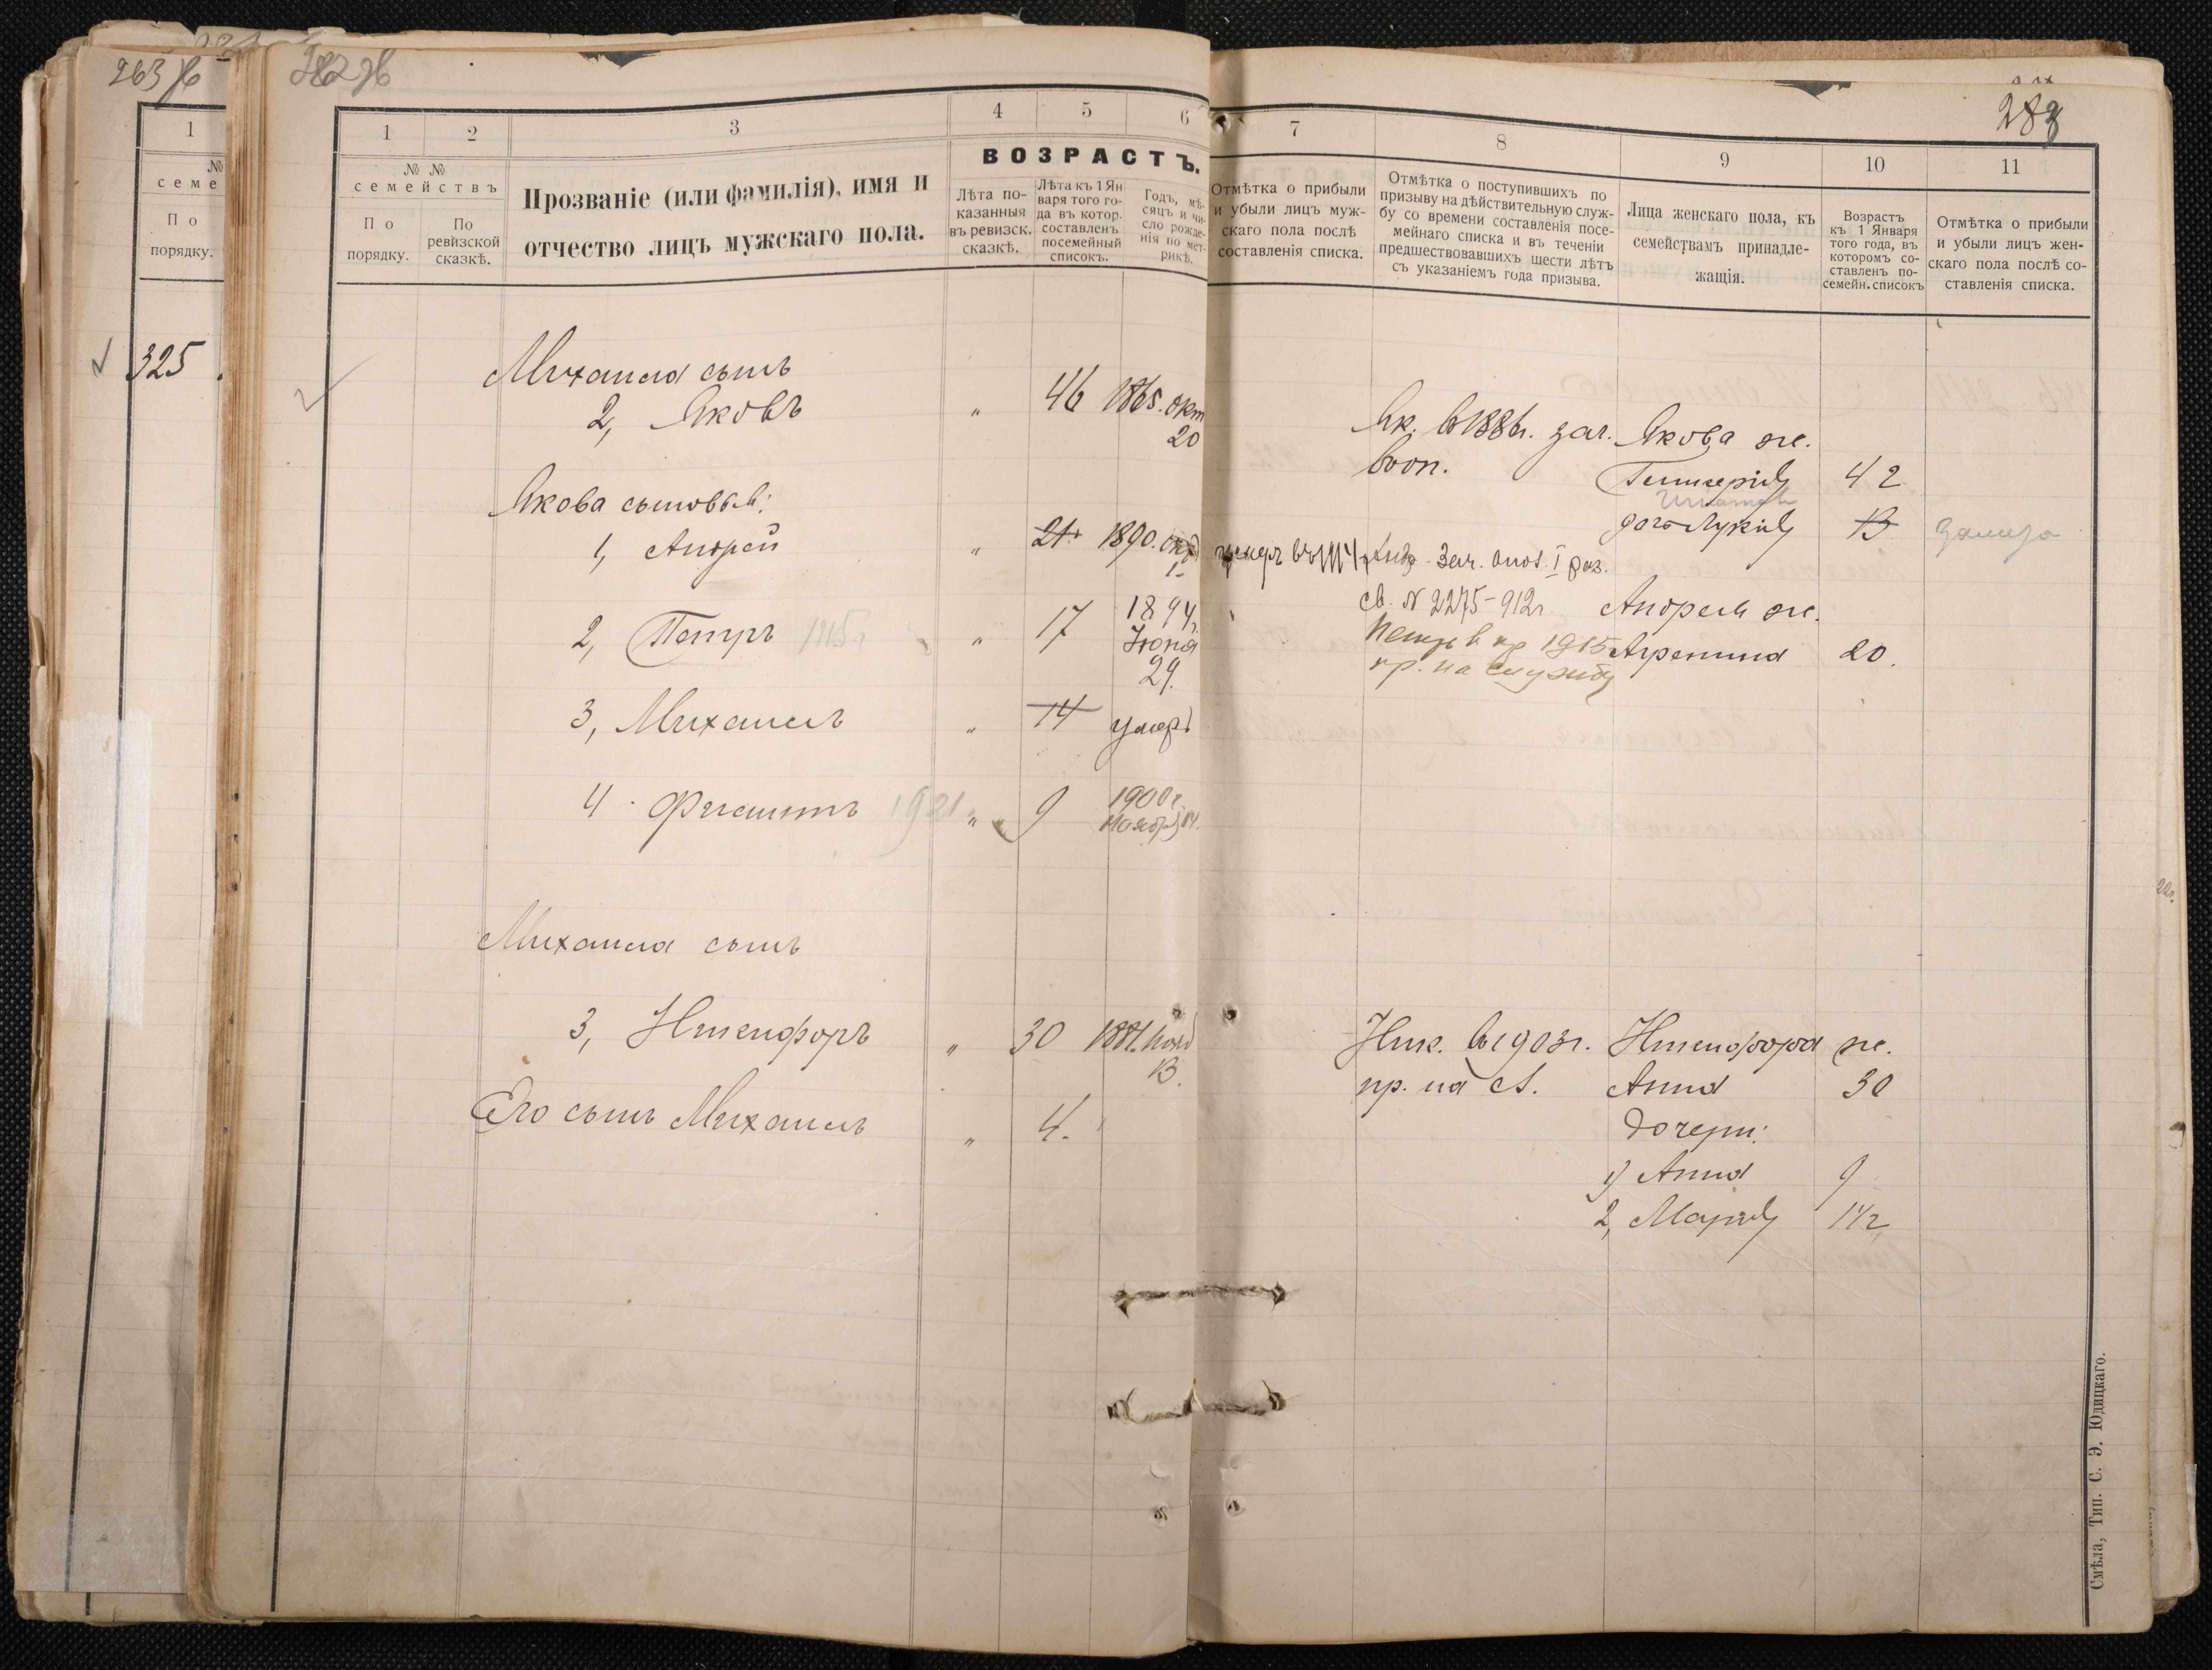 263
325
1
№
семе
По
порядку.
282
283
1
2
3
4
5
6
№ №
семействъ
По
порядку.
По
ревизской
сказкѣ.
Прозваніе (или фамилія), имя и
отчество лицъ мужскаго пола.
ВОЗРАСТЪ.
Лѣта по-
казанныя
въ ревизск.
сказкѣ.
Лѣта къ 1 Ян
варя того го-
да въ котор.
составленъ
посемейный
списокъ.
Годъ, мѣ-
сяцъ и чи-
сло рожде-
нія по мет-
рикѣ.
7
8
9
10
11
Отмѣтка о прибыли
и убыли лицъ муж-
скаго пола послѣ
составленія списка.
Отмѣтка о поступившихъ по
призыву на дѣйствительную служ-
бу со времени составленія посе-
мейнаго списка и въ теченіи
предшествовавшихъ шести лѣтъ
съ указаніемъ года призыва.
Лица женскаго пола, къ
семействамъ принадле-
жащія.
Возрастъ
къ 1 Января
того года, въ
которомъ со-
ставленъ по-
семейн. списокъ
Отмѣтка о прибыли
и убыли лицъ жен-
скаго пола послѣ со-
ставленія списка.
Михаила сынъ
2, Яковъ " 46 1865. окт
20
Як. въ 1886г. зач. Якова ж.
воп. Гликерія 42
Якова сыновья: дочь Лукія 13
1, Андрей " 21 1890.
1
умеръ въ 1914 Андр. Зач. опол. I раз.
св. № 2275-912г. Андрея ж.
2, Петръ 1915 " 17 1894г.
Іюня
29.
Петръ в пр 1915 Агрепина 20.
пр. на службу
3, Михаилъ " 14 умеръ
4. Филиппъ 1921 " 9 1900г.
Ноября 14.
Михаила сынъ
3, Никифоръ " 30 1881. Ноя
13.
Ник. въ 1903г. Никифора ж.
пр. на с. Анна 30
Его сынъ Михаилъ " 4.
дочери:
1) Анна 9
2, Марія 1½
Смѣла, Тип. С. Э. Юдицкаго.